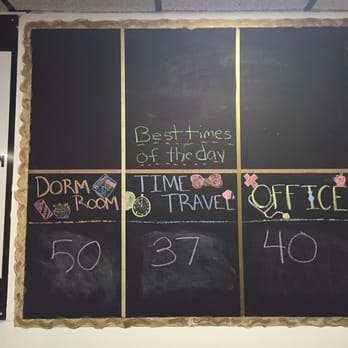 Best times
of the day
DORM
ROOM
TIME
TRAVEL
OFFICE
50
37
40